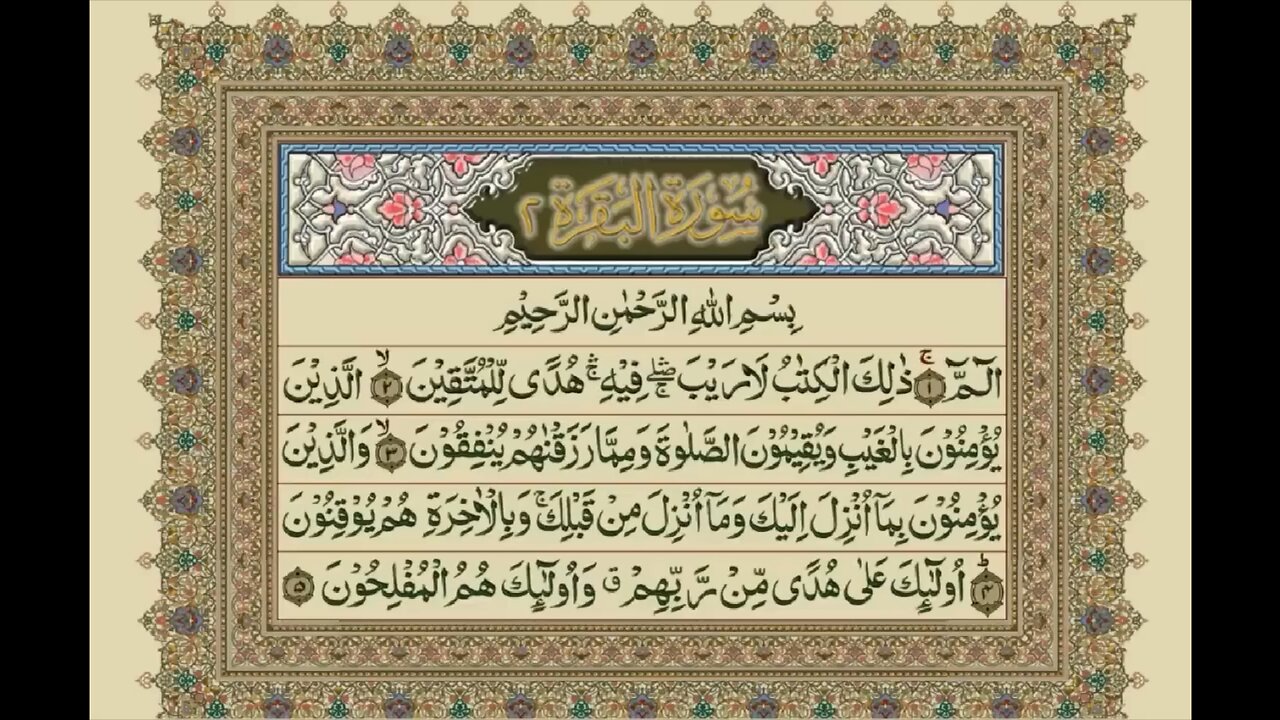 سُوْرَةُ الْبَقَرَةِ ٢
بِسْمِ اللّٰهِ الرَّحْمٰنِ الرَّحِيْمِ
الٓمّٓ ۚ﴿۱﴾ ذٰلِكَ الْكِتٰبُ لَا رَيْبَ ۛۖۚ فِيْهِ ۛۚ هُدًى لِّلْمُتَّقِيْنَ ۙ﴿۲﴾ الَّذِيْنَ
يُؤْمِنُوْنَ بِالْغَيْبِ وَيُقِيْمُوْنَ الصَّلٰوةَ وَمِمَّا رَزَقْنٰهُمْ يُنْفِقُوْنَ ۙ﴿۳﴾ وَالَّذِيْنَ
يُؤْمِنُوْنَ بِمَآ اُنْزِلَ اِلَيْكَ وَمَآ اُنْزِلَ مِنْ قَبْلِكَ ۚ وَبِالْاٰخِرَةِ هُمْ يُوْقِنُوْنَ
ؕ﴿۴﴾ اُولٰٓئِكَ عَلٰى هُدًى مِّنْ رَّبِّهِمْ ۗ وَاُولٰٓئِكَ هُمُ الْمُفْلِحُوْنَ ﴿۵﴾